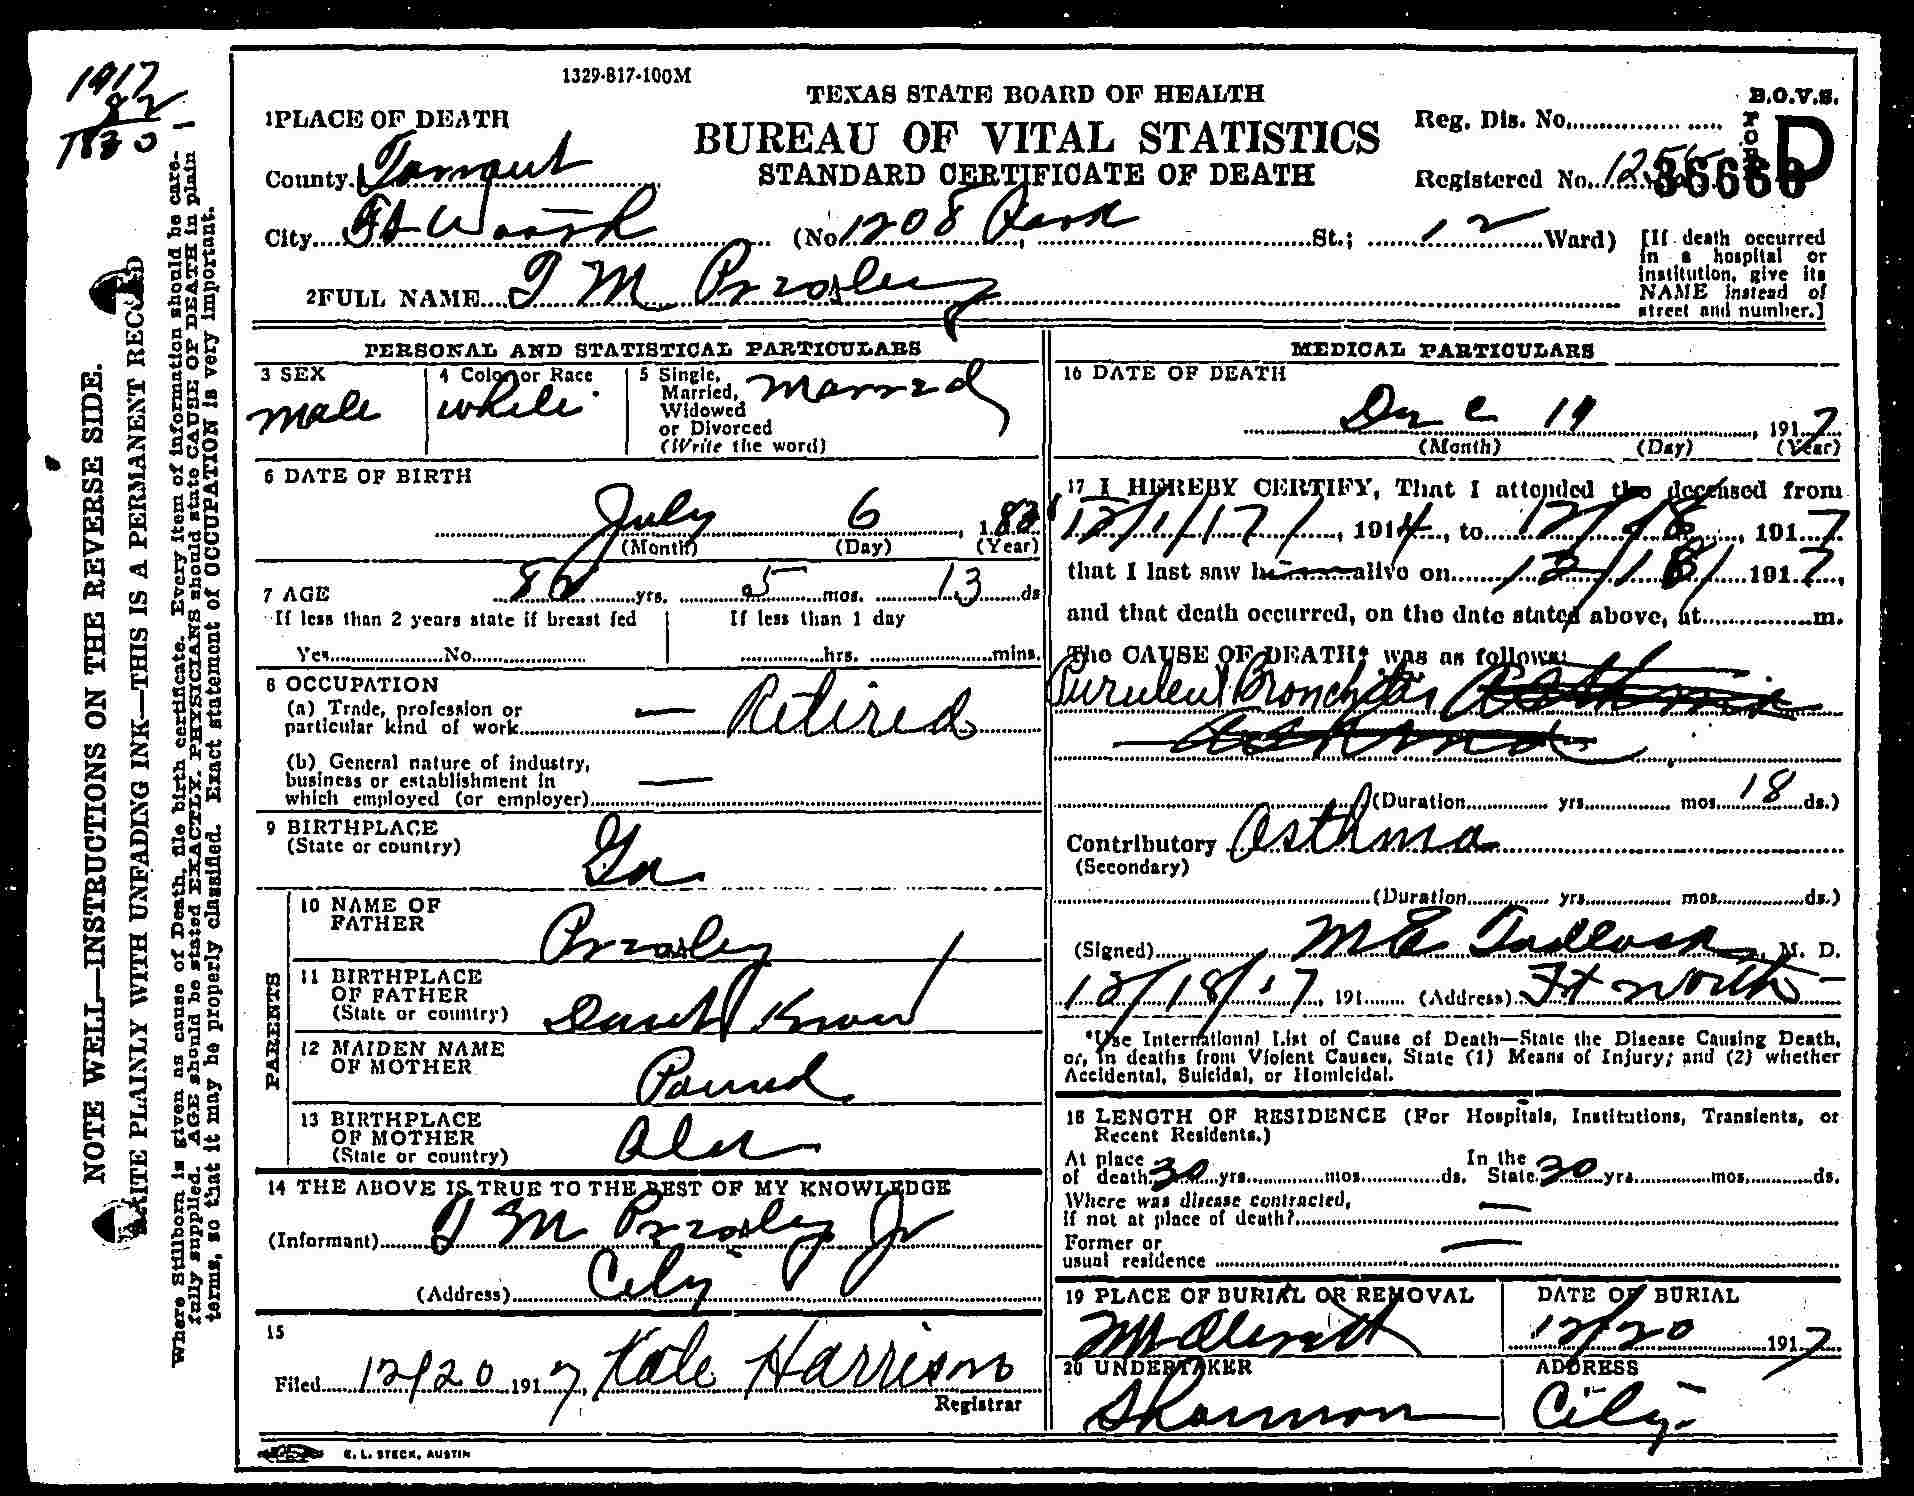 1917
82
1830
1329-817-100M
TEXAS STATE BOARD OF HEALTH
B.O.V.S.
BUREAU OF VITAL STATISTICS
STANDARD CERTIFICATE OF DEATH
FORM D
Reg. Dis. No.
Registered No. 1256
36660
1 PLACE OF DEATH
County Tarrant
City Ft Worth (No 1208 Park St.; 12 Ward)
[If death occurred
in a hospital or
institution, give its
NAME instead of
street and number.]
2 FULL NAME T M Presley
PERSONAL AND STATISTICAL PARTICULARS
3 SEX
male
4 Color or Race
white
5 Single,
Married,
Widowed
or Divorced
(Write the word)
married
6 DATE OF BIRTH
July 6, 183
(Month) (Day) (Year)
7 AGE 82 yrs. 5 mos. 13 ds
If less than 2 years state if breast fed
Yes No
If less than 1 day
hrs. mins.
8 OCCUPATION
(a) Trade, profession or
particular kind of work — Retired
(b) General nature of industry,
business or establishment in
which employed (or employer) —
9 BIRTHPLACE
(State or country)
Ga
PARENTS
10 NAME OF
FATHER
Presley
11 BIRTHPLACE
OF FATHER
(State or country)
Don't Know
12 MAIDEN NAME
OF MOTHER
Pound
13 BIRTHPLACE
OF MOTHER
(State or country)
Ala
14 THE ABOVE IS TRUE TO THE BEST OF MY KNOWLEDGE
(Informant) T M Presley Jr
(Address) City
15
Filed 12/20 1917, Kate Harrison
Registrar
E. L. STECK, AUSTIN
MEDICAL PARTICULARS
16 DATE OF DEATH
Dec 19, 1917
(Month) (Day) (Year)
17 I HEREBY CERTIFY, That I attended the deceased from
12/1/17, 191, to 12/18, 1917
that I last saw him alive on 12/18/ 1917,
and that death occurred, on the date stated above, at m.
The CAUSE OF DEATH* was as follows:
Purulent Bronchitis
Asthma
(Duration yrs. mos. 18 ds.)
Contributory Asthma
(Secondary)
(Duration yrs. mos. ds.)
(Signed) M E Tadlock, M. D.
12/18/17, 191 (Address) Ft Worth
*Use International List of Cause of Death—State the Disease Causing Death,
or, in deaths from Violent Causes, State (1) Means of Injury; and (2) whether
Accidental, Suicidal, or Homicidal.
18 LENGTH OF RESIDENCE (For Hospitals, Institutions, Transients, or
Recent Residents.)
At place
of death 30 yrs. mos. ds. In the
State 30 yrs. mos. ds.
Where was disease contracted,
if not at place of death? —
Former or
usual residence —
19 PLACE OF BURIAL OR REMOVAL
Mt Olivet
DATE OF BURIAL
12/20 1917
20 UNDERTAKER
Shannon
ADDRESS
City
NOTE WELL—INSTRUCTIONS ON THE REVERSE SIDE.
WRITE PLAINLY WITH UNFADING INK—THIS IS A PERMANENT RECORD
Where Stillborn is given as cause of Death, file birth certificate. Every item of information should be care-
fully supplied. AGE should be stated EXACTLY. PHYSICIANS should state CAUSE OF DEATH in plain
terms, so that it may be properly classified. Exact statement of OCCUPATION is very important.